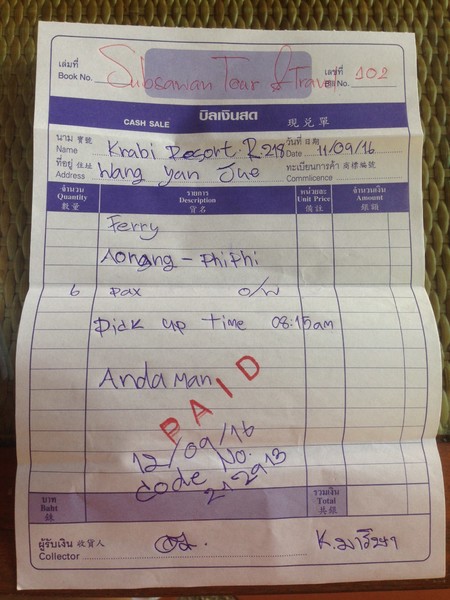 เล่มที่ Subsawan Tour & Travel เลขที่
Book No. Bill No. 102
CASH SALE บิลเงินสด 現兑單
นาม 寶號 วันที่ 日期
Name Krabi Resort. R.218 Date 11/09/16
ที่อยู่ 住址 ทะเบียนการค้า 商標編號
Address Wang Yan Jue Commlicence.
จำนวน รายการ หน่วยละ จำนวนเงิน
Quantity Description Unit Price Amount
數量 貨名 備註 銀額
Ferry
Aonang - PhiPhi
6 pax o/w
Pick up time 08:15am
Andaman
PAID
12/09/16
Code No:
212913
บาท รวมเงิน
Baht Total
銖 共銀
ผู้รับเงิน 收貨人
Collector K.มาริษา